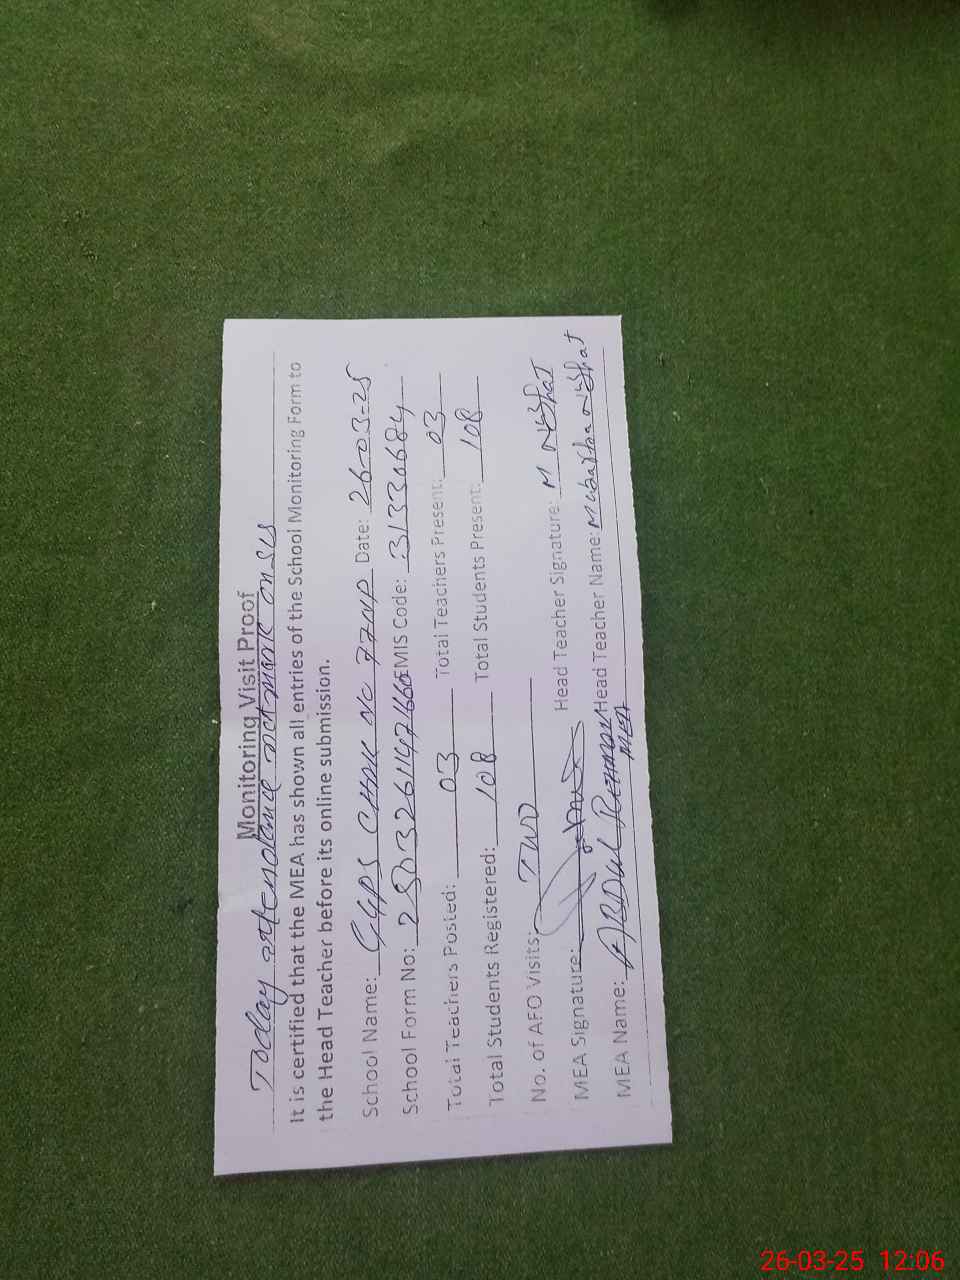 Today attendance not mark on SIS
Monitoring Visit Proof
It is certified that the MEA has shown all entries of the School Monitoring Form to
the Head Teacher before its online submission.
School Name: GGPS CHAK NO 77NP Date: 26-03-25
School Form No: EMIS Code: 31330684
Total Teachers Posted: 03 Total Teachers Present: 03
Total Students Registered: 108 Total Students Present: 108
No. of AFO Visits: TWO
MEA Signature: Head Teacher Signature: M Nishat
MEA Name: ABDUL REHMAN MEA Head Teacher Name: Nishat
26-03-25 12:06